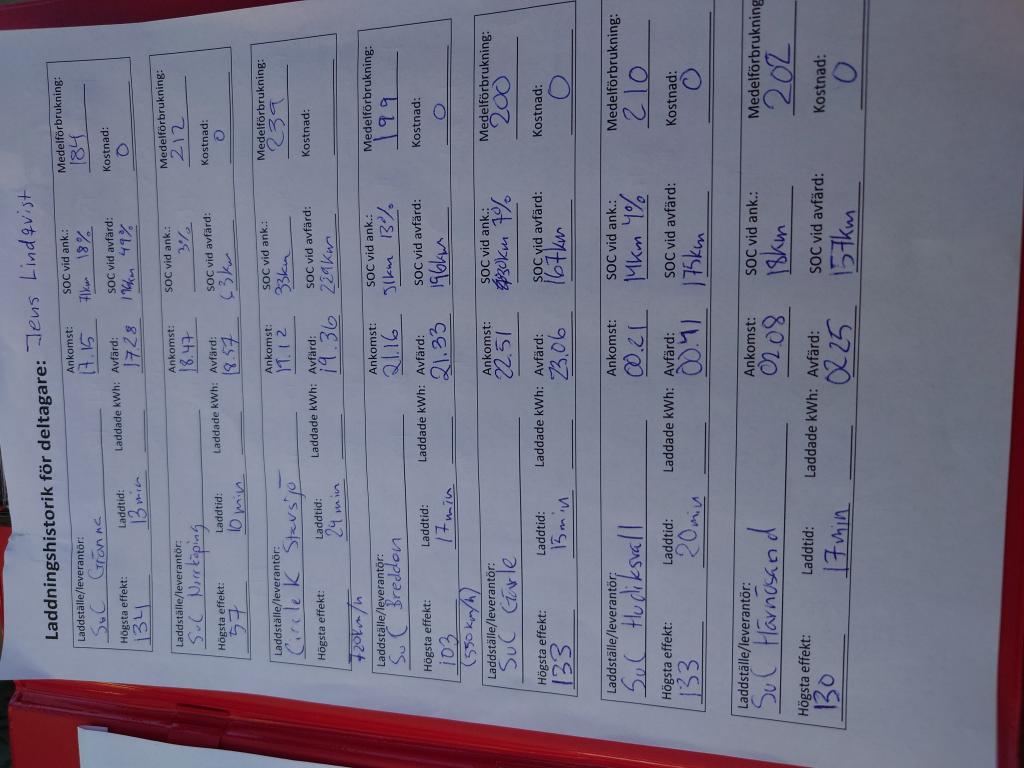 Laddningshistorik för deltagare: Jens Lindqvist
Laddställe/leverantör: Ankomst: SOC vid ank.: Medelförbrukning:
SuC Gränna 17.15 71km 18% 184
Högsta effekt: Laddtid: Laddade kWh: Avfärd: SOC vid avfärd: Kostnad:
134 13 min 17.28 49% 0
Laddställe/leverantör: Ankomst: SOC vid ank.: Medelförbrukning:
SuC Norrköping 18.47 3% 212
Högsta effekt: Laddtid: Laddade kWh: Avfärd: SOC vid avfärd: Kostnad:
57 10 min 18.57 63km 0
Laddställe/leverantör: Ankomst: SOC vid ank.: Medelförbrukning:
Circle K Stavsjö 19.12 33km 239
Högsta effekt: Laddtid: Laddade kWh: Avfärd: SOC vid avfärd: Kostnad:
24 min 19.36 229km
720km/h
Laddställe/leverantör: Ankomst: SOC vid ank.: Medelförbrukning:
SuC Bredden 21.16 51km 13% 199
Högsta effekt: Laddtid: Laddade kWh: Avfärd: SOC vid avfärd: Kostnad:
103 17 min 21.33 196km 0
(550km/h)
Laddställe/leverantör: Ankomst: SOC vid ank.: Medelförbrukning:
SuC Gävle 22.51 30km 7% 200
Högsta effekt: Laddtid: Laddade kWh: Avfärd: SOC vid avfärd: Kostnad:
133 15 min 23.06 167km 0
Laddställe/leverantör: Ankomst: SOC vid ank.: Medelförbrukning:
SuC Hudiksvall 00.21 14km 4% 210
Högsta effekt: Laddtid: Laddade kWh: Avfärd: SOC vid avfärd: Kostnad:
133 20 min 00.41 175km 0
Laddställe/leverantör: Ankomst: SOC vid ank.: Medelförbrukning:
SuC Härnösand 02.08 18km 202
Högsta effekt: Laddtid: Laddade kWh: Avfärd: SOC vid avfärd: Kostnad:
130 17 min 02.25 157km 0